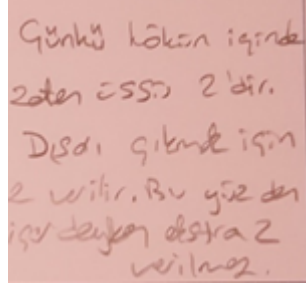 Çünkü kökün içinde
zaten üssü 2'dir.
Dışarı çıkmak için
2 verilir. Bu yüzden
içerdeyken ekstra 2
verilmez.